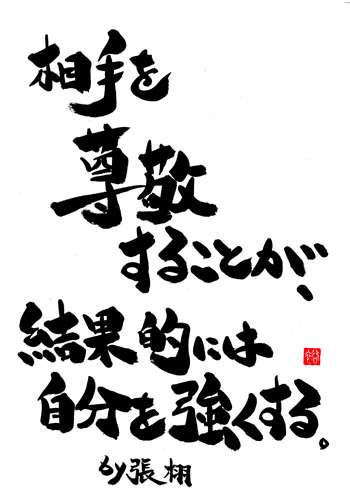 相手を
尊敬
することが、
結果的には
自分を強くする。
by張栩